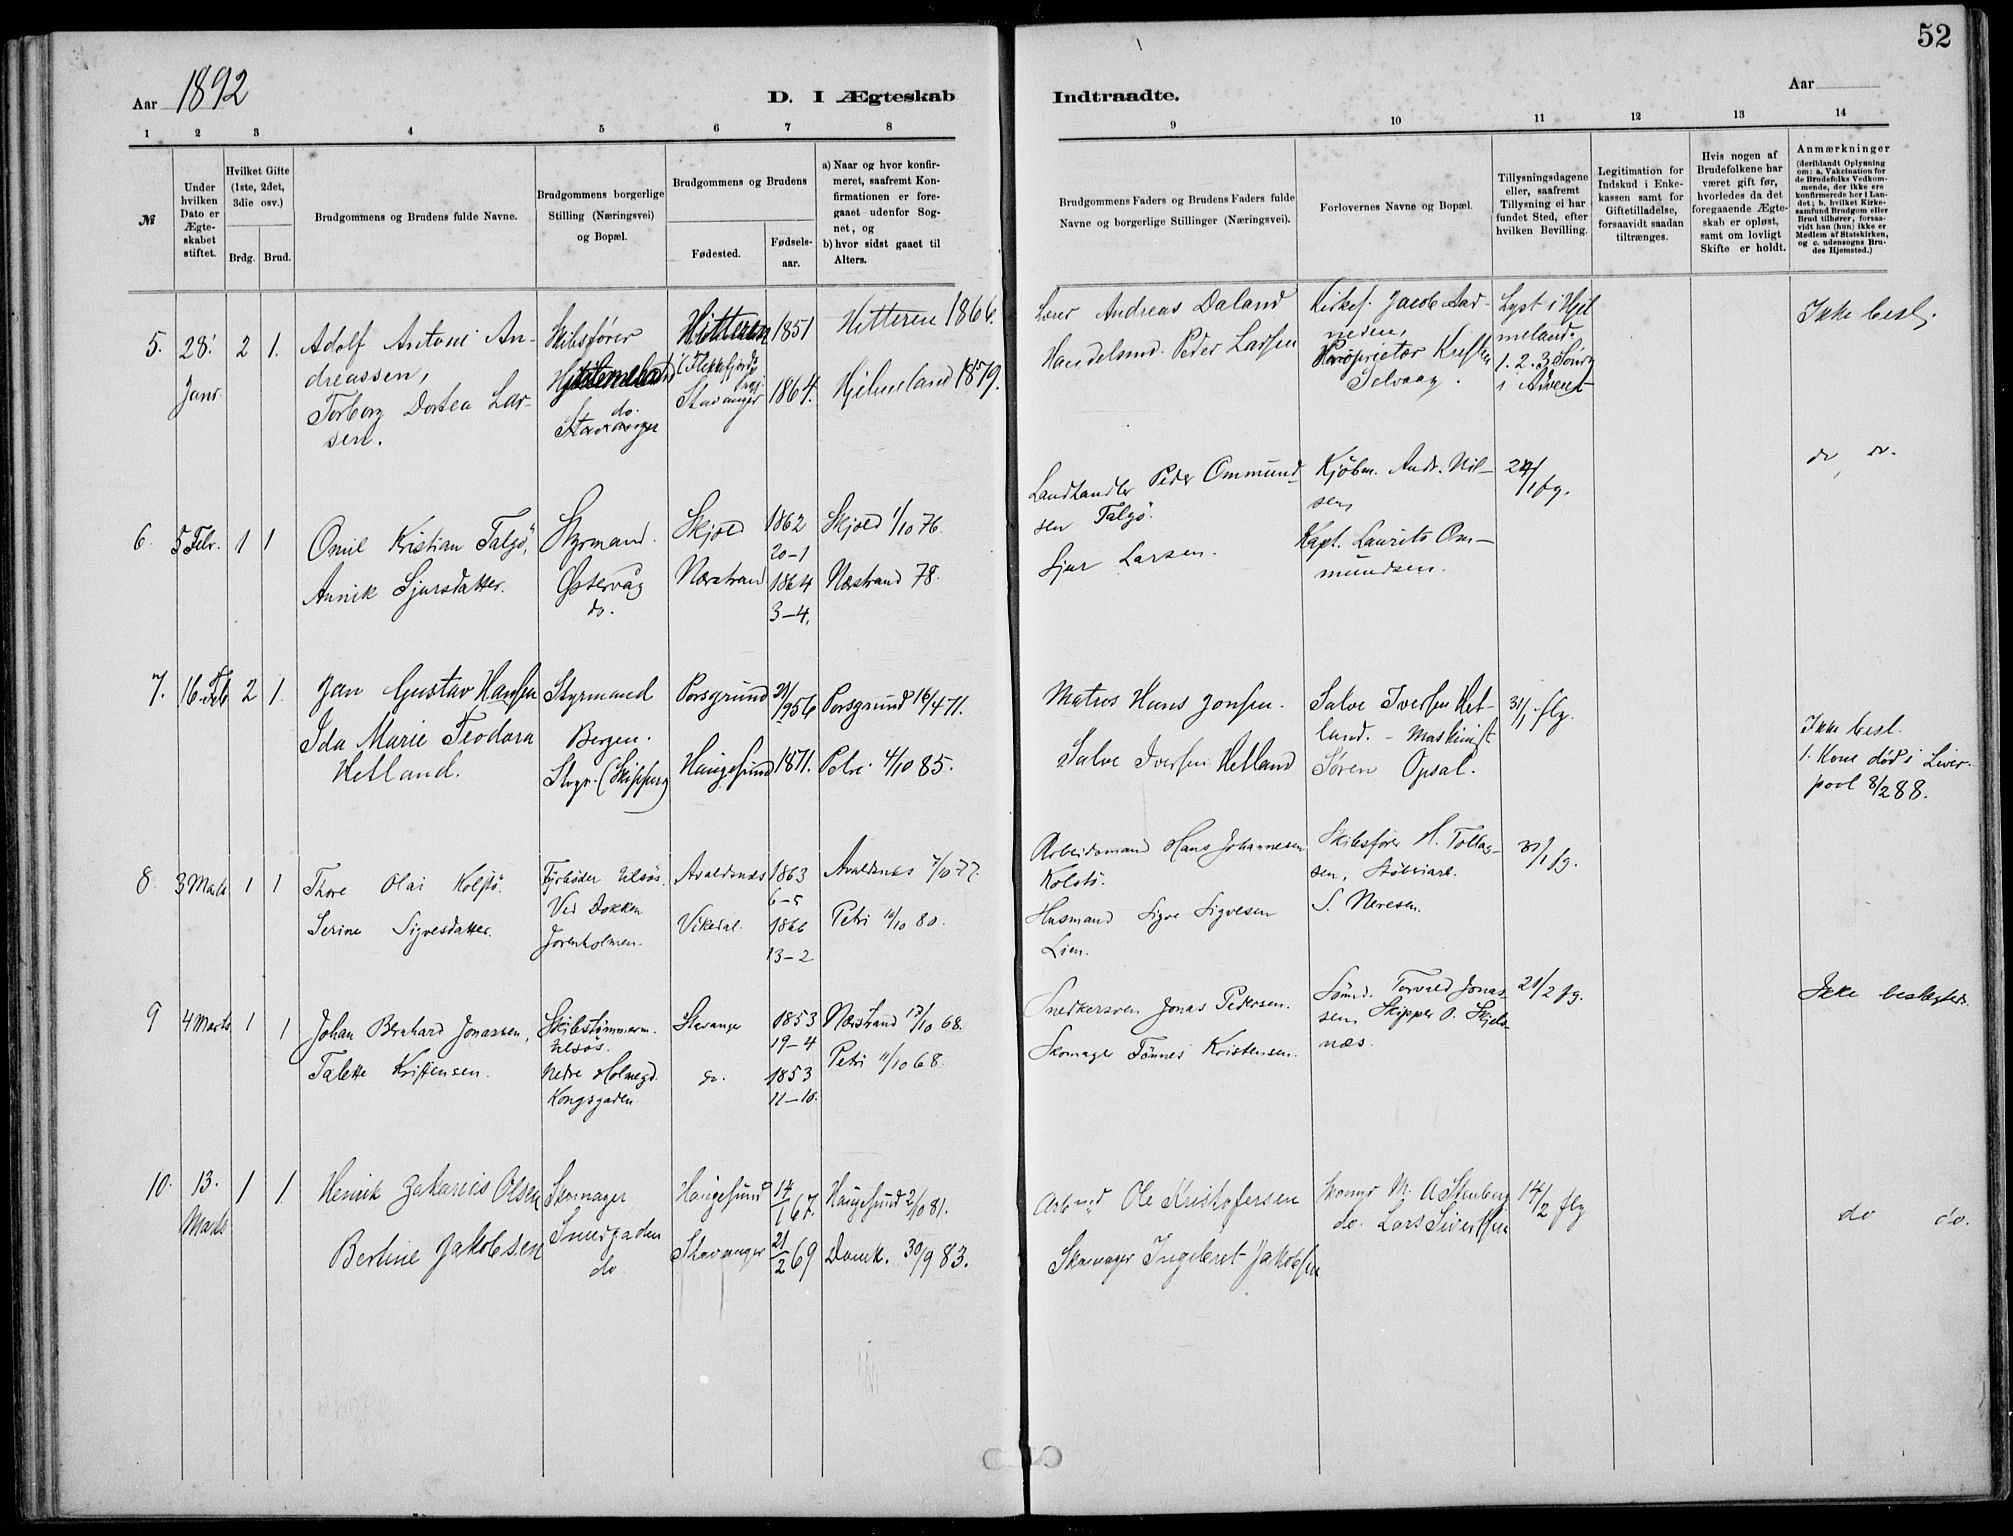 52
Aar 1892
D. I Ægteskab
Indtraadte.
Aar
1 2 3 4 5 6 7 8
9 10 11 12 13 14
№
Under
hvilken
Dato er
Ægte-
skabet
stiftet.
Hvilket Gifte
(1ste, 2det,
3die osv.)
Brdg. Brud.
Brudgommens og Brudens fulde Navne.
Brudgommens borgerlige
Stilling (Næringsvei)
og Bopæl.
Brudgommens og Brudens
Fødested.
Fødsels-
aar.
a) Naar og hvor konfir-
meret, saafremt Kon-
firmationen er fore-
gaaet udenfor Sog-
net, og
b) hvor sidst gaaet til
Alters.
Brudgommens Faders og Brudens Faders fulde
Navne og borgerlige Stillinger (Næringsvei).
Forlovernes Navne og Bopæl.
Tillysningsdagene
eller, saafremt
Tillysning ei har
fundet Sted, efter
hvilken Bevilling.
Legitimation for
Indskud i Enke-
kassen samt for
Giftetilladelse,
forsaavidt saadan
tiltrænges.
Hvis nogen af
Brudefolkene har
været gift før,
hvorledes da det
foregaaende Ægte-
skab er opløst,
samt om lovligt
Skifte er holdt.
Anmærkninger
(deriblandt Oplysning
om: a. Vakcination for
de Brudefolks Vedkom-
mende, der ikke ere
konfirmerede her i Lan-
det; b. hvilket Kirke-
samfund Brudgom eller
Brud tilhører, forsaa-
vidt han (hun) ikke er
Medlem af Statskirken,
og c. udensogns Bru-
des Hjemsted.)
5. 28. Janr 2 1.
Adolf Antoni An-
dreassen,
Torborg Dortea Lar-
sen.
Skibsfører
do.
Stavanger
Hitteren
Stavanger
1851
1864.
Hitteren 1866.
Hjelmeland 1879.
Lærer Andreas Daland
Handelsmd. Peder Larsen
Kirkes. Jacob Aad-
Proprietær Kristen
Selvaag.
Lyst i Hjel
meland.
1. 2. 3 Sönd
i Advent
Ikke besl.
6. 5 Febr. 1 1
Omil Kristian Talgö,
Annik Sjursdatter.
Styrmand.
Østervåg
do.
Skjold
Nærstrand
1862
20-1
1864
3-4.
Skjold 1/10 76.
Nærstrand 78.
Landhandler Peder Ommund-
sen Talgö.
Sjur Larsen.
Kjöbm. Andr. Nil-
sen,
Kapt. Laurits Om-
mundsen.
24/1 fg.
do do.
7. 16. Feb 2 1.
Jan Gustav Hansen
Ida Marie Teodora
Hetland.
Styrmand
Bergen.
Stvgr. (Skipperg)
Porsgrund
Haugesund
1871.
Porsgrund 16/4 71.
Petri 4/10 85.
Matros Hans Jonsen.
Salve Iversen Hetland
Salve Iversen Het-
land. - Maskinist
Søren Opsal.
31/1 flg.
Ikke besl.
1. Kone död i Liver-
pool 8/2 88.
8. 3 Marts 1 1
Thore Olai Kolstö.
Serine Sigvesdatter.
Fyrböder Utsös.
Ved Dokken
Jorenholmen.
Avaldsnæs
Vikedal.
1863
6-5
1866
13-2
Avaldsnes 7/10 77.
Petri 10/10 80.
Arbeidsmand Hans Johannesen
Kolstö.
Husmand Sigve Sigvesen
Lien.
Skibsfører H. Tollag-
sen,
S. Neresen.
31/1 fg.
9 4 Marts 1 1
Johan Bernhard Jonassen,
Talette Kristensen.
Skibstömmerm.
Utsös.
Nedre Holmegd.
Kongsgaden
Stavanger
do.
1853
19-4
1853
11-10.
Nærstrand 17/10 68.
Petri 11/10 68.
Snedkersven Jonas Pedersen.
Skomager Tönnes Kristensen.
Sömd. Torvald Jonas-
sen, Skipper O. Skjels-
næs.
21/2 fg.
Ikke beslægtede.
10. 13. Marts 1 1.
Henrik Zakarias Olsen
Berline Jakobsen
Skomager
Smedgaden
do
Haugesund
Stavanger
14/1 67.
21/2 69
Haugesund 2/10 81.
Domk. 30/9 83.
Arbmd Ole Kristofersen
Skomager Ingebret Jakobsen
Skomgr M. A. Stenberg
do. Lars Sivertsen
14/2 flg
do do.